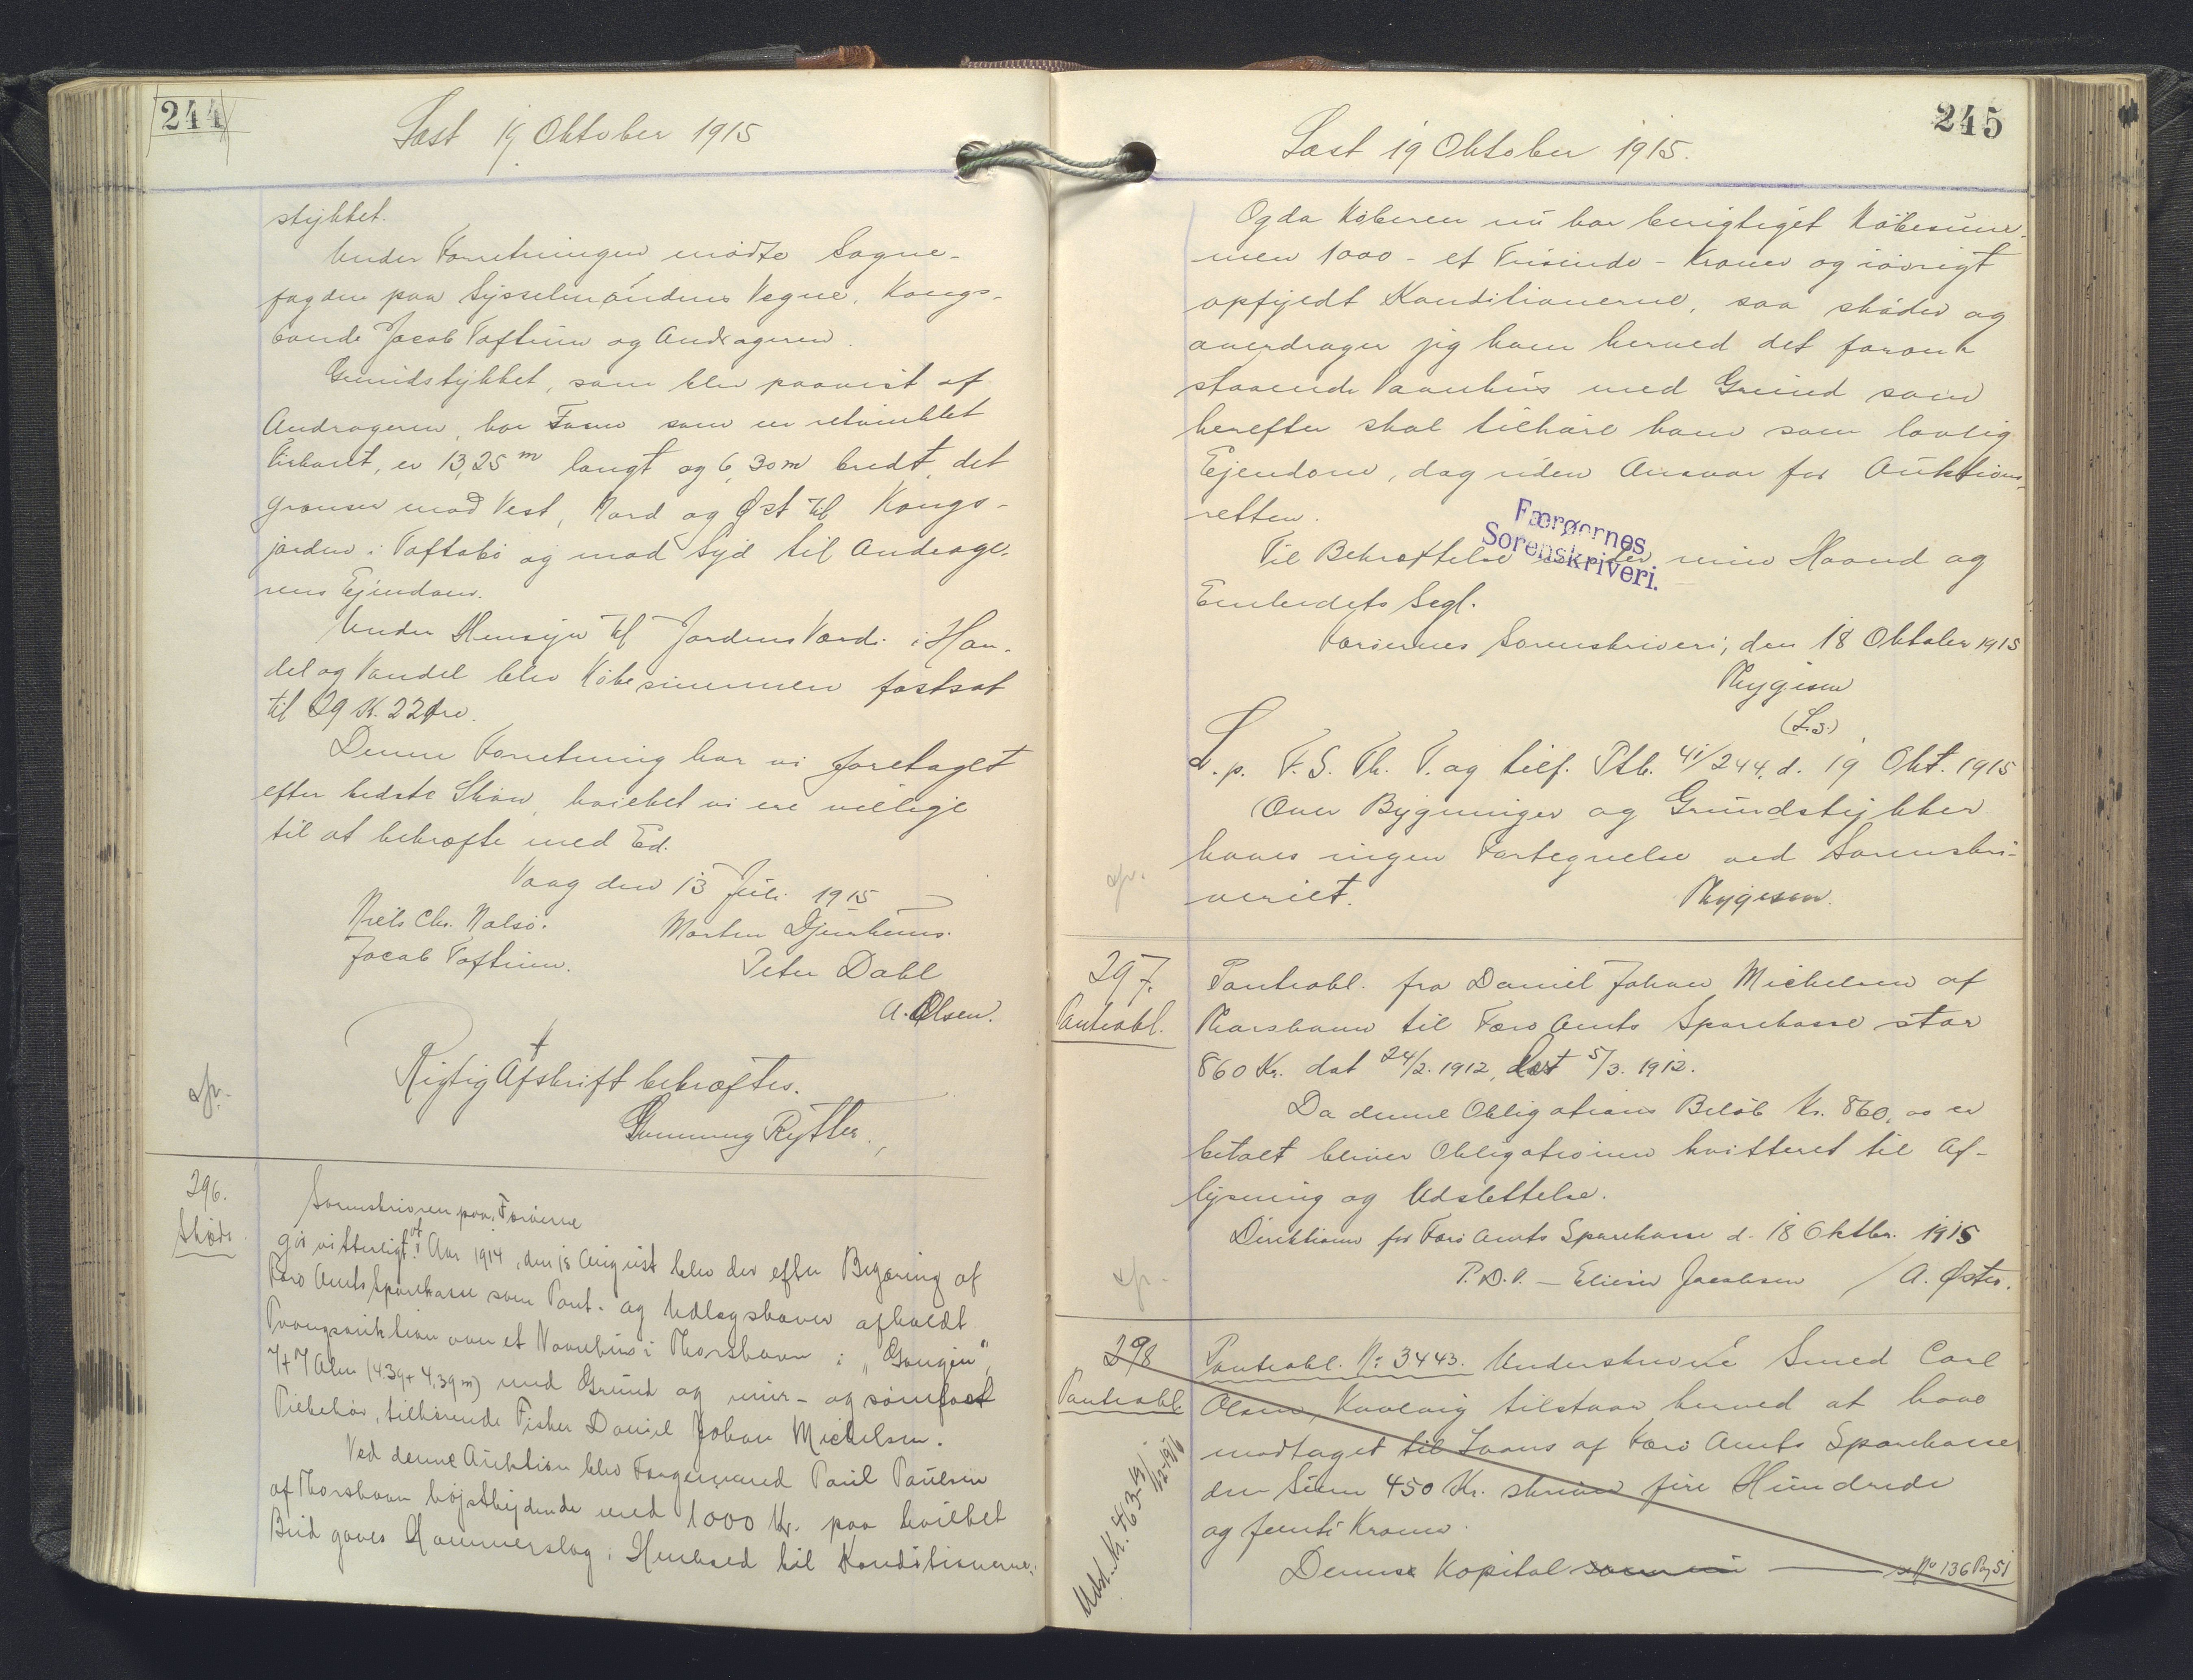 244
Læst 19 Oktober 1915
stykket.
Under Forretningen mødte Sogne-
fogden paa Sysselmandens Vegne, Kongs-
bonde Jacob Toftum og Andrageren.
Grundstykket, som blev paavist af
Andrageren, har Form som en retvinklet
Firkant, er 13,25 m langt og 6,30 m bredt, det
grænser mod Vest, Nord og Øst til Kongs-
jorden i Toftebø og mod Syd til Andrage-
rens Ejendom.
Under Hensyn til Jordens Værdi i Han-
del og Vandel blev Købesummen fastsat
til 29 K. 22 Øre.
Denne Forretning har vi foretaget
efter bedste Skøn, hvilket vi ere villige
til at bekræfte med Ed.
Vaag den 13 Juli 1915
Niels Chr. Nalsø. Morten Djurhuus.
Jacob Toftum. Peter Dahl
A. Olsen.
Rigtig Afskrift bekræftes.
Gunnung Rytter.
296.
Skøde
Sorenskriveren paa Færøerne
gør vitterligt: at Aar 1914, den 18 August blev der efter Begæring af
Færø Amts Sparekasse som Pant- og Udlægshaver afholdt
Tvangsauktion over et Vaanehus i Thorshavn i "Gongin",
7+7 Alen (4.39+4,39 m) med Grund og mur- og sømfast
Tilbehør, tilhørende Fisker Daniel Johan Michelsen.
Ved denne Auktion blev Poul Poulsen
af Thorshavn højstbydende med 1000 Kr. paa hvilket
Bud gaves Hammerslag i Henhold til Konditionerne.
245
Læst 19 Oktober 1915.
Og da Køberen nu har berigtiget Købesum-
men 1000 - et Tusinde - Kroner og iøvrigt
opfyldt Konditionerne, saa skøder og
overdrager jeg ham herved det foran
staaende Vaanhus med Grund som
herefter skal tilhøre ham som lovlig
Ejendom, dog uden Ansvar for Auktions-
retten.
Færøernes
Sorenskriveri.
Til Bekræftelse under min Haand og
Embedets Segl.
Færøernes Sorenskriveri, den 18 Oktober 1915
Thygesen
(L.S.)
L. p. F. S. Th. T. og tilf. Ptb. 41/244, d. 19 Okt. 1915
Over Bygninger og Grundstykker
haves ingen Fortegnelse ved Sorenskri-
veriet. Thygesen.
297.
Panteobl.
Panteobl. fra Daniel Johan Michelsen af
Thorshavn til Færø Amts Sparekasse stor
860 Kr. dat 24/2. 1912, læst 5/3. 1912.
Da denne Obligations Beløb Kr. 860,00 er
betalt bliver Obligationen kvitteret til Af-
lysning og Udslettelse.
Direktionen for Færø Amts Sparekasse d. 18 Oktbr. 1915
P. D. V. - Eliesar Jacobsen / A. Øster.
298
Panteobl.
Panteobl. No 3443. Underskrevne Smed Carl
Olsen, Kvalvig tilstaar herved at have
modtaget til Laans af Færø Amts Sparekasse
den Sum 450 Kr. skriver fire Hundrede
og femti Kroner.
Denne Kapital som — se No 136 Pag 51